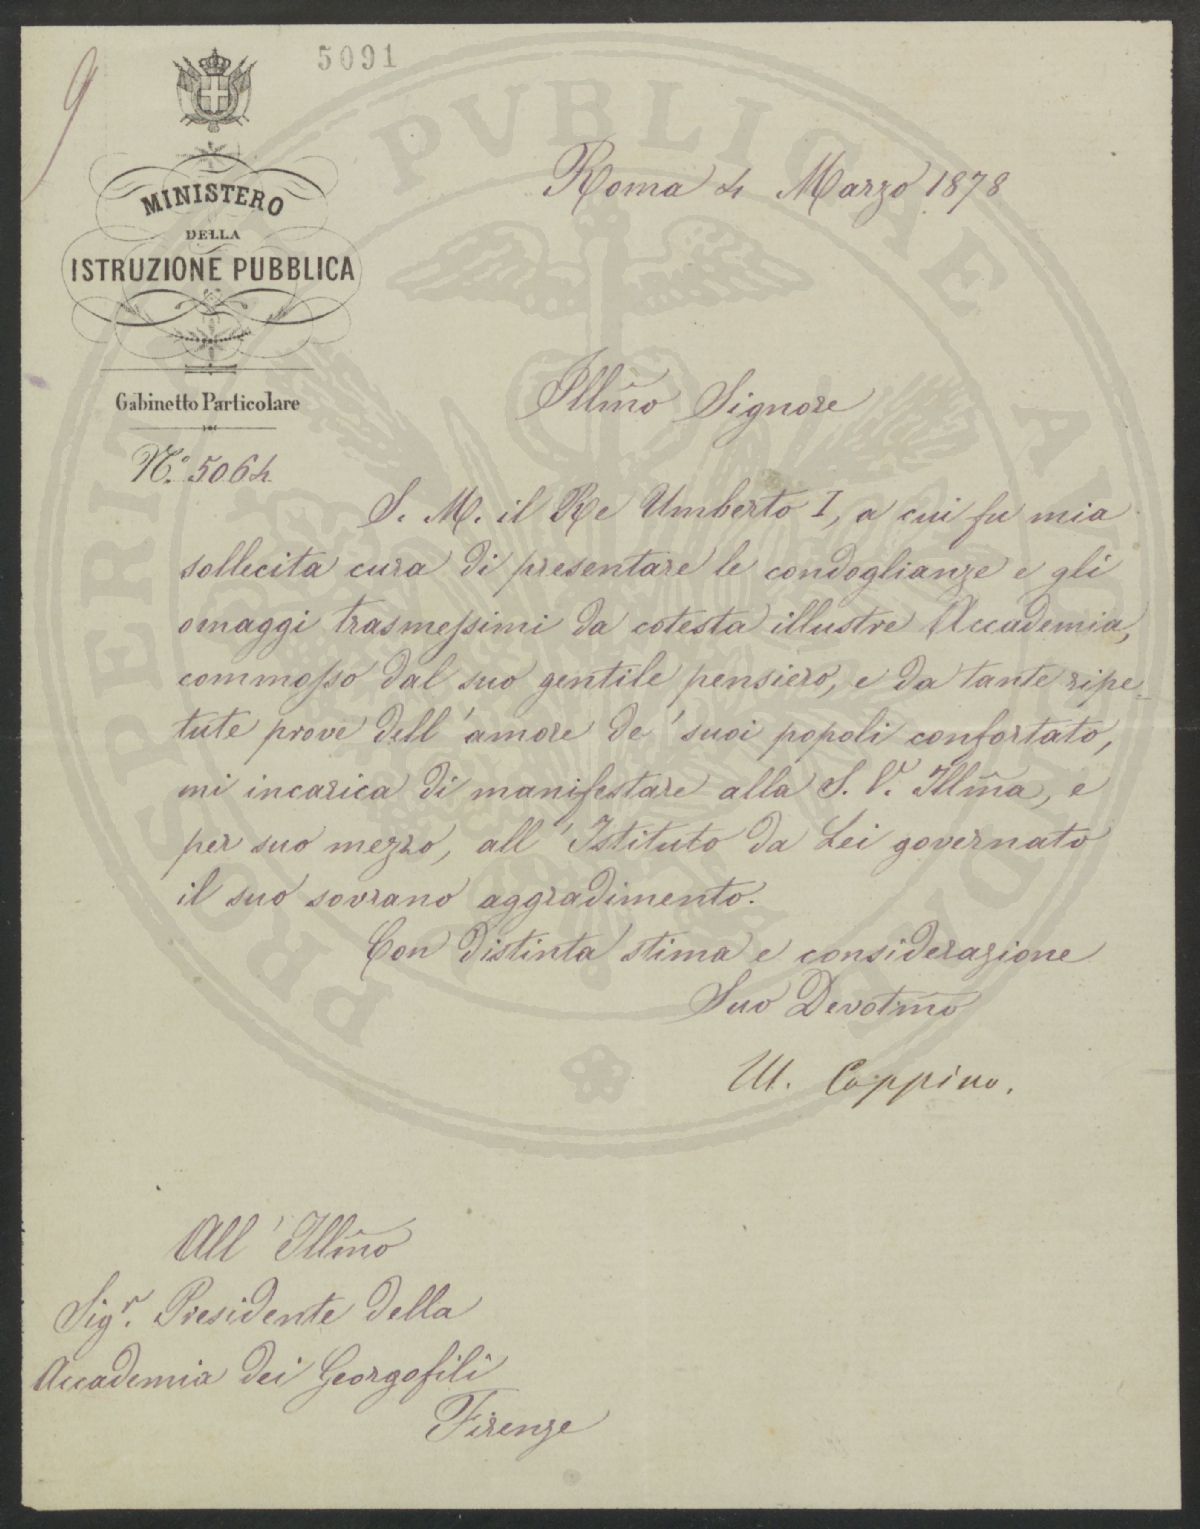 9
5091
MINISTERO
DELLA
ISTRUZIONE PUBBLICA
Gabinetto Particolare
N.º 5064
Roma 4 Marzo 1878
Illm̃o Signore
S. M. il Re Umberto I, a cui fu mia
sollecita cura di presentare le condoglianze e gli
omaggi trasmeſsimi da cotesta illustre Accademia,
commoſso dal suo gentile pensiero, e da tante ripe-
tute prove dell'amore de' suoi popoli confortato,
mi incarica di manifestare alla S. V. Illm̃a, e
per suo mezzo, all'Istituto da Lei governato
il suo sovrano aggradimento.
Con distinta stima e considerazione
Suo Devotm̃o
M. Coppino.
All'Illm̃o
Sigʳ. Presidente della
Accademia dei Georgofili
Firenze
PROSPERITATI PVBLICAE AVGENDAE